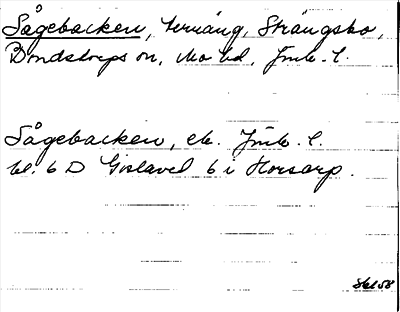 Sågebacken, terräng, Strängsbo,
Bondstorps sn, Mo hd, Jönk. l.
Sågebacken, ek. Jönk. l.
bl. 6 D Gislaved 6 i Horsarp.